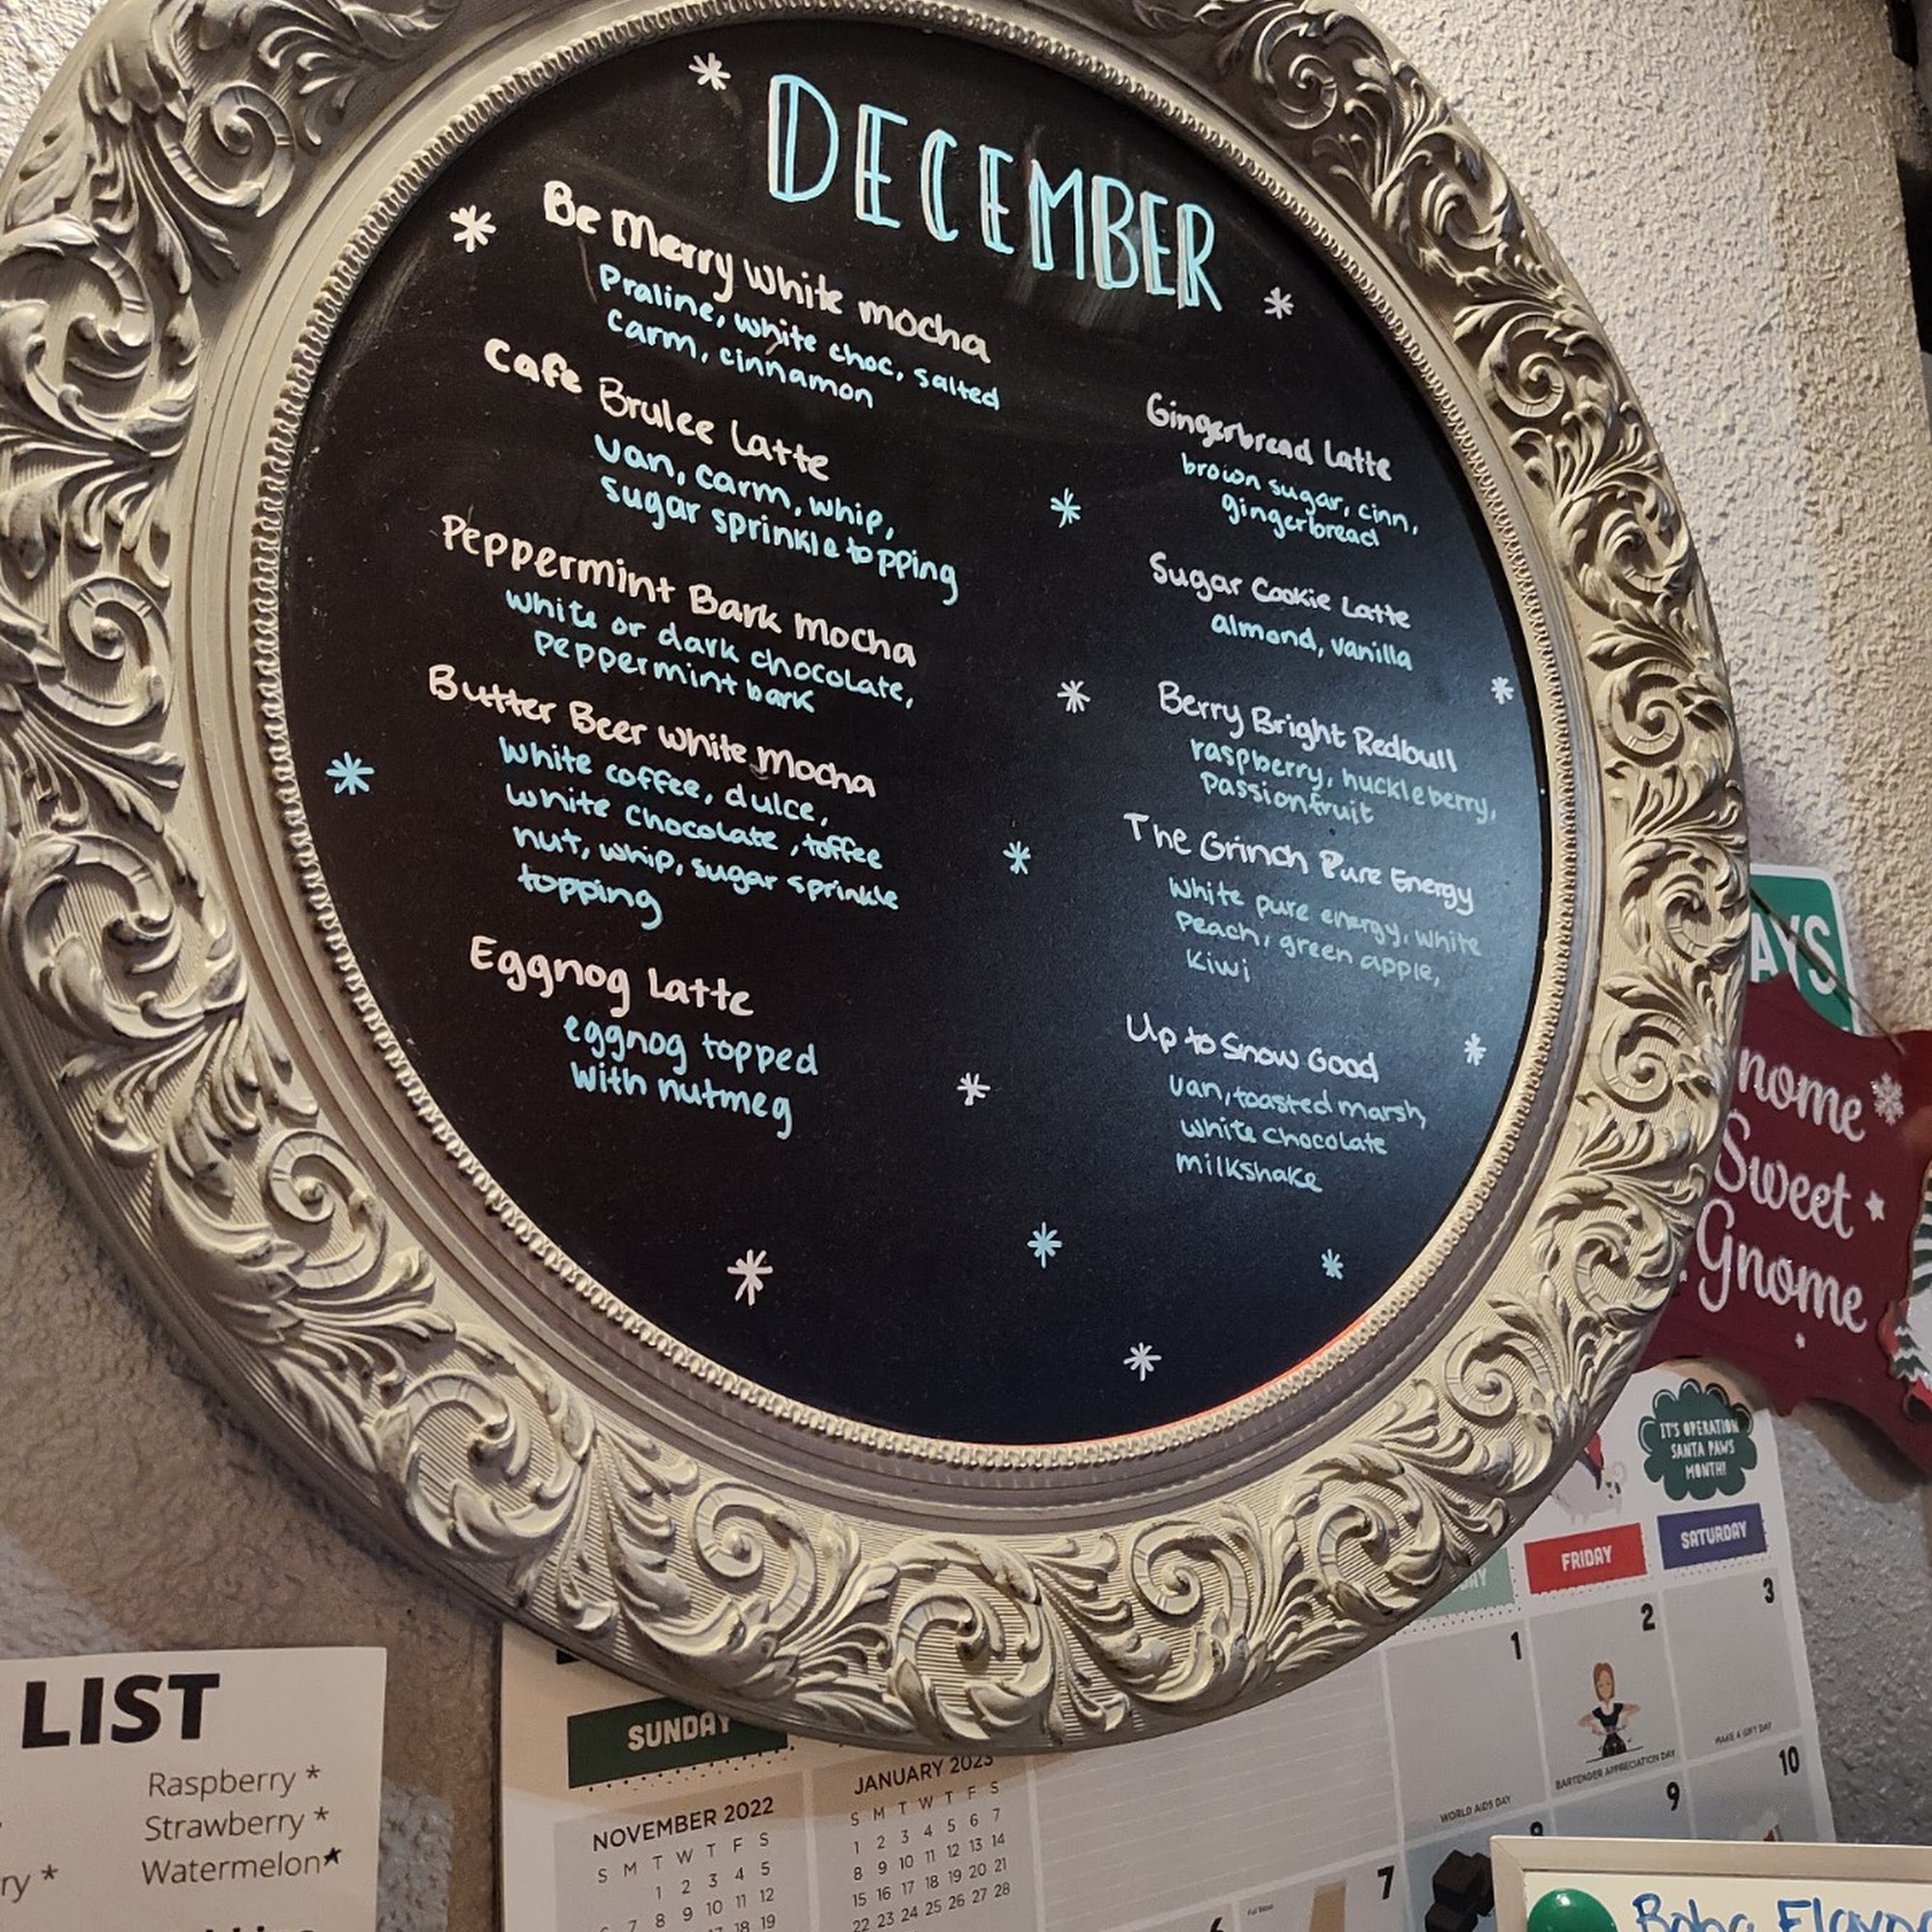 DECEMBER
Be Merry White mocha
Praline, white choc, salted
carm, cinnamon
Cafe Brulee Latte
Van, carm, whip,
sugar sprinkle topping
Peppermint Bark Mocha
white or dark chocolate,
peppermint bark
Butter Beer White Mocha
White coffee, dulce,
white chocolate, toffee
nut, whip, sugar sprinkle
topping
Eggnog Latte
eggnog topped
with nutmeg
Gingerbread Latte
brown sugar, cinn,
gingerbread
Sugar Cookie Latte
almond, vanilla
Berry Bright Redbull
raspberry, huckleberry,
passionfruit
The Grinch Pure Energy
White pure energy, white
peach, green apple,
kiwi
Up to Snow Good
Van, toasted marsh,
white chocolate
milkshake
AYS
nome
Sweet
Gnome
IT'S OPERATION
SANTA PAWS
MONTH!
SUNDAY
FRIDAY
SATURDAY
1
2
3
WORLD AIDS DAY
BARTENDER APPRECIATION DAY
MAKE A GIFT DAY
7
8
9
10
NOVEMBER 2022
S M T W T F S
1 2 3 4 5
6 7 8 9 10 11 12
17 18 19
JANUARY 2023
S M T W T F S
1 2 3 4 5 6 7
8 9 10 11 12 13 14
15 16 17 18 19 20 21
22 23 24 25 26 27 28
LIST
Raspberry *
Strawberry *
Watermelon*
ry *